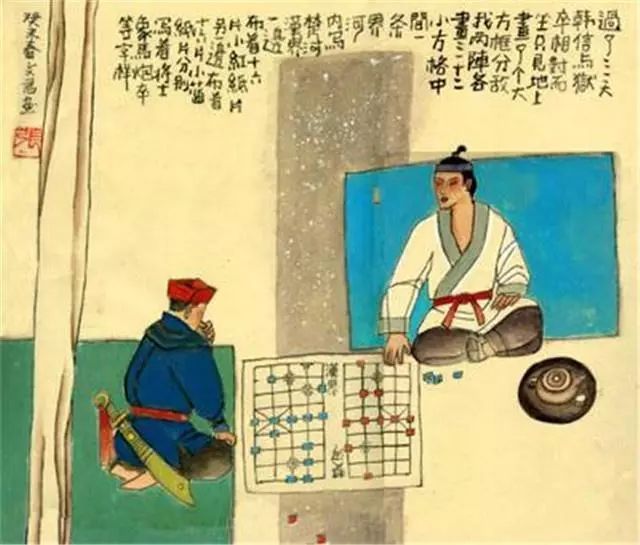 過了二三天
韩信与獄
卒相對而
坐只見地上
畫了个大
方框分敌
我两陣各
畫三十二
小方格中
間一
条
界
河
内写
楚河
漢界
一边
布着十六
片小紅紙片
另一边布着
十六片小蓝
纸片分别
写着将士
象馬炮卒
等字样
癸未春
漢界
楚河